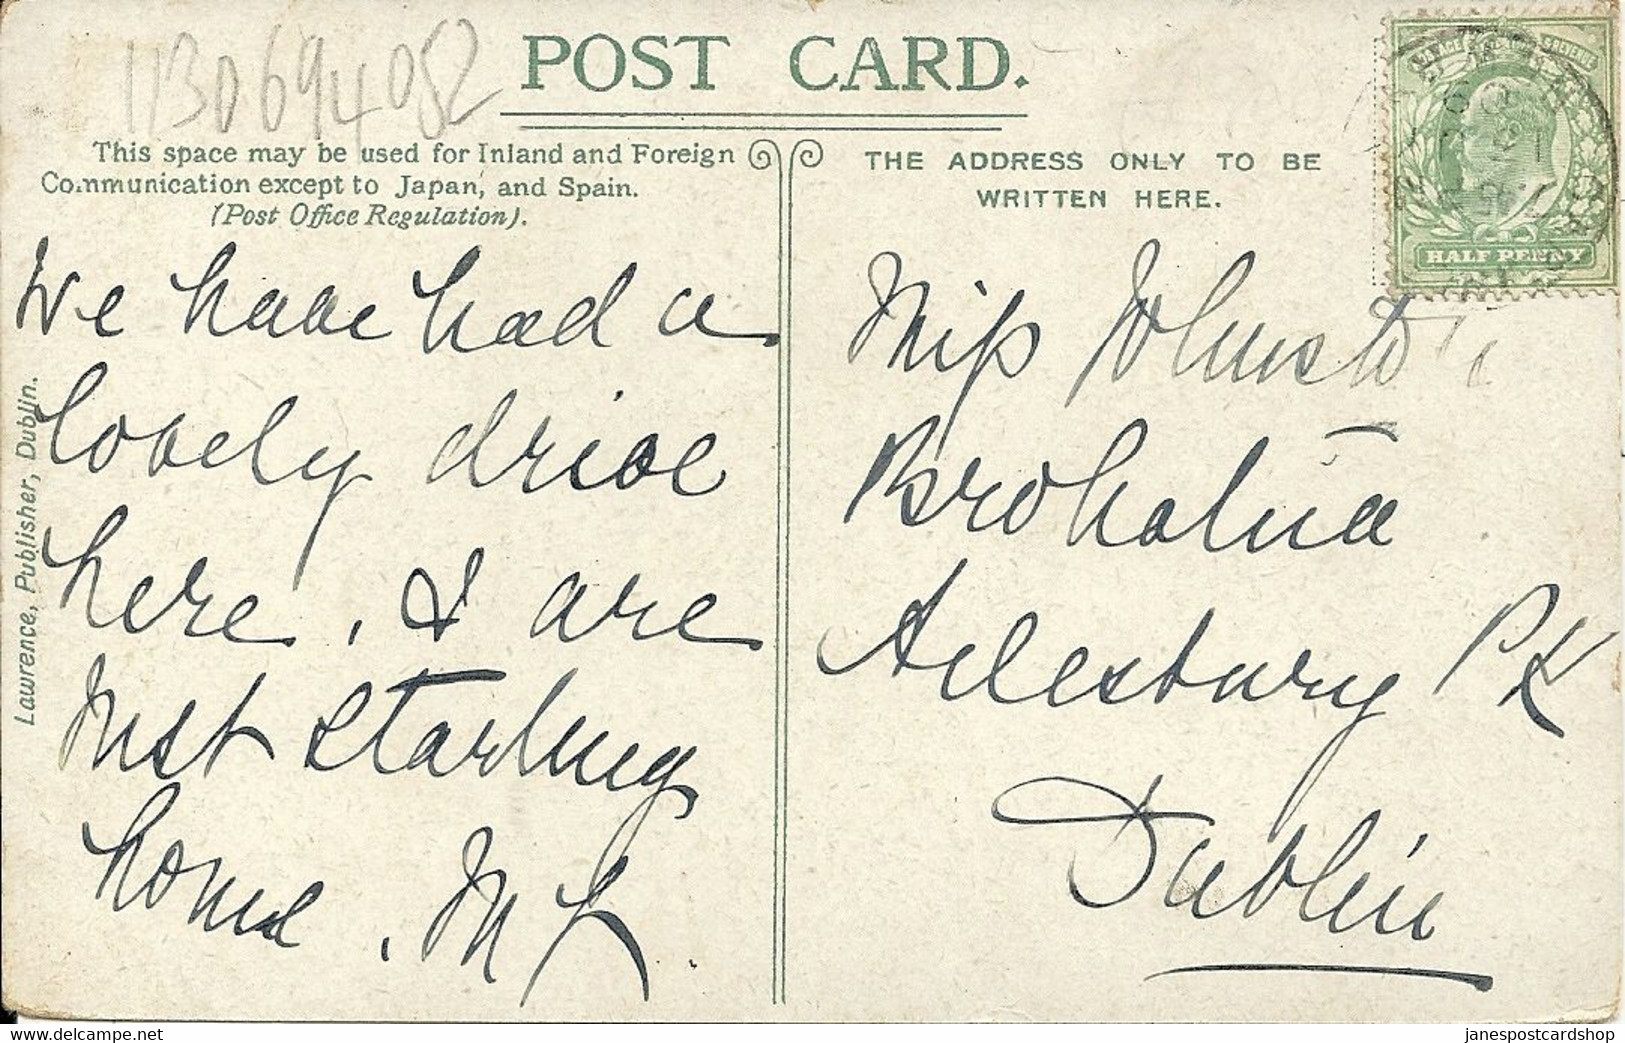 1130694082
POST CARD.
This space may be used for Inland and Foreign
Communication except to Japan, and Spain.
(Post Office Regulation).
THE ADDRESS ONLY TO BE
WRITTEN HERE.
HALF PENNY
Lawrence, Publisher, Dublin.
We have had a
lovely drive
here, & are
just starting
home. M
Miss Johnst
Ailesbury Pk
Dublin
delcampe.net
janespostcardshop